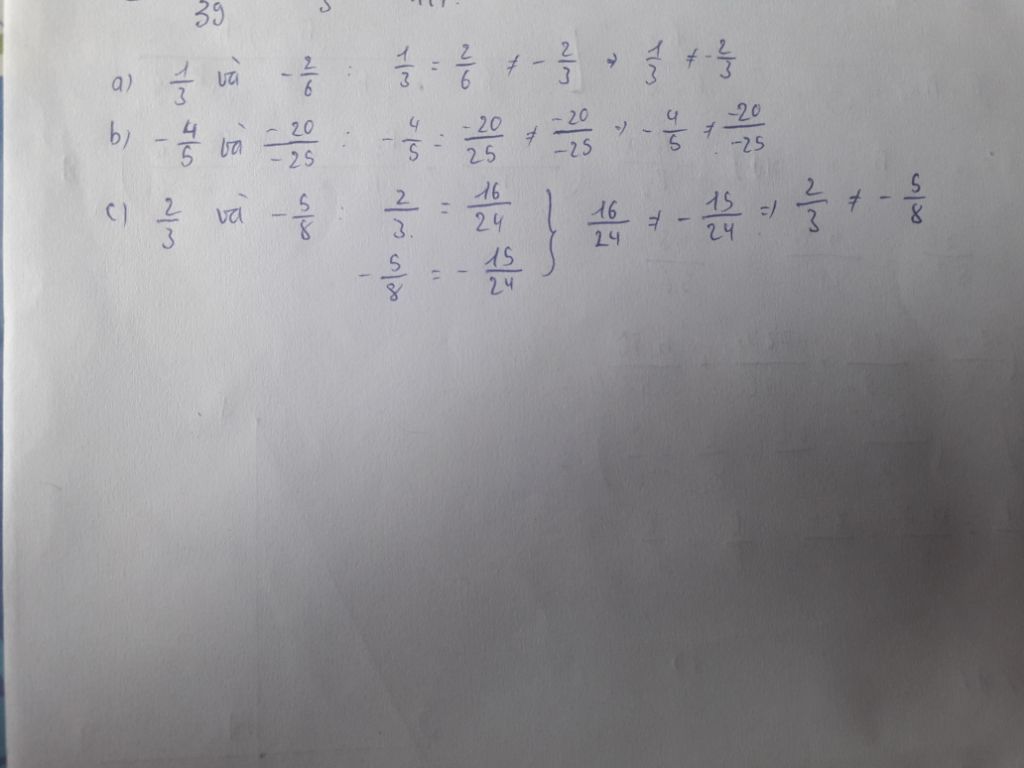 39
a) 1/3 và - 2/6 : 1/3 = 2/6 ≠ - 2/3 => 1/3 ≠ - 2/3
b) - 4/5 và -20/-25 : - 4/5 = -20/25 ≠ -20/-25 => - 4/5 ≠ -20/-25
c) 2/3 và - 5/8 : 2/3 = 16/24 } 16/24 ≠ - 15/24 => 2/3 ≠ - 5/8
- 5/8 = - 15/24